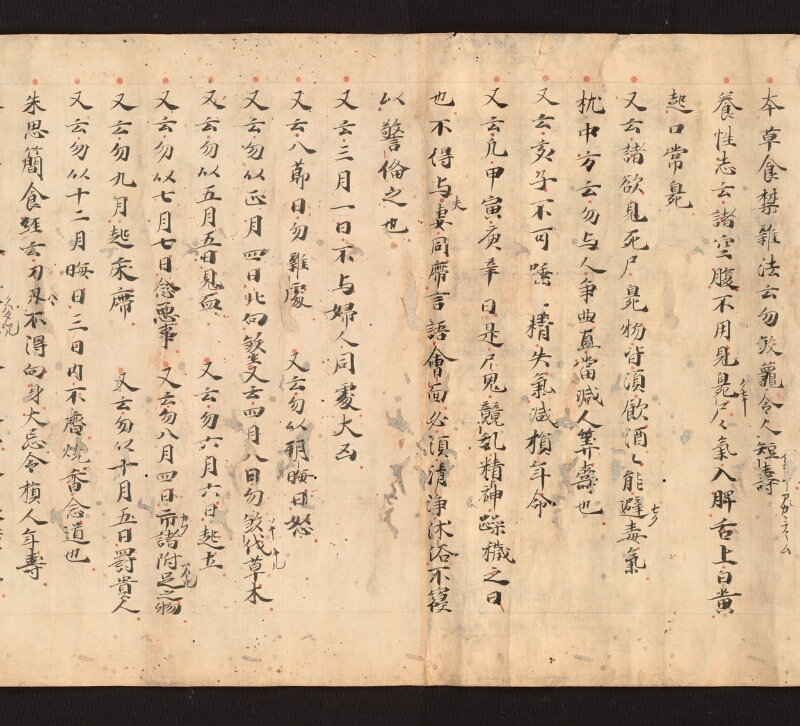 本草食禁雜法云勿煞龜令人短壽
養性志云諸空腹不用見臭尸々氣入脾舌上白黄
起口常臭
又云諸欲見死尸臭物皆須飲酒々能避毒氣
枕中方云勿与人争曲直當減人筭壽也
又云亥子不可唾精失氣減損年命
又云凡甲寅庚辛日是尸鬼競乱精神躁穢之日
也不得与妻夫同席言語會面必須清淨沐浴不寝
以警俻之也
又云三月一日不与婦人同處大凶
又云八節日勿雜處 又云勿以朔晦日怒
又云勿以正月四日北向煞生又云四月八日勿煞伐草木
又云勿以五月五日見血 又云勿六月六日起土
又云勿以七月七日念悪事 又云勿八月四日市諸附足之物
又云勿九月起床席 又云勿以十月五日罸貴人
又云勿以十二月晦日三日内不齋燒香念道也
朱思簡食經云刀刃不得向身大忌令損人年壽